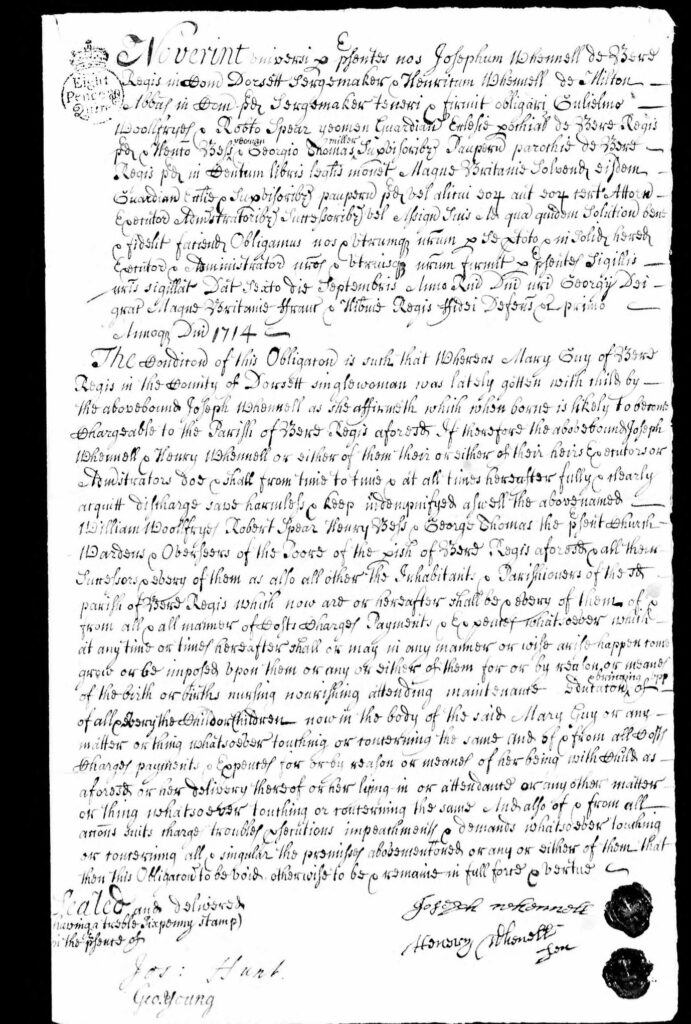 Eight
Pence
Noverint universi p psentes nos Josephum Whennell de Bere
Regis in Com Dorsett Sergemaker & Henricum Whennell de Milton
Abbas in Com pd Sergemaker teneri & firmit obligari Gulielmo
Woolfryes & Robto Spear yeomen Guardian Eclesie pochial de Bere Regis
pd & Henrico Bess yeoman & Georgio Thomas miller Supvisoribz Pauperu parochie de Bere
Regis pd in Centum libris legalis monet Magne Britanie Solvend eisdem
Guardian Eclie & Supvisoribz pauperu pd vel alicui eor aut eor cert Attorn
Executor Administratoribz Successoribz vel Assign Suis Ad qua quidem Solution bene
& fidelit faciend Obligamus nos & utrumqz nrum p se & toto & in Solid hered
Executor & Administrator nros & utriusqz nrum firmit p psentes Sigillis
nris sigillat Dat Sexto die Septembris Anno Rni Dni nri Georgij Dei
grat Magne Britanie Franc & Hibnie Regis Fidei Defens &c primo
Annoqz Dni 1714
The Condicon of this Obligacon is such that Whereas Mary Guy of Bere
Regis in the County of Dorsett singlewoman was lately gotten with child by
the abovebound Joseph Whennell as she affirmeth which when borne is likely to become
Chargeable to the Parish of Bere Regis aforesd If therefore the abovebound Joseph
Whennell & Henry Whennell or either of them their or either of their heirs Executors or
Admistrators doe & shall from time to time & at all times hereafter fully & clearly
acquitt discharge save harmless & keep indempnifyed aswell the abovenamed
William Woolfryes Robert Spear Henry Bess & George Thomas the psent Church
Wardens & Overseers of the Poore of the pish of Bere Regis aforesd & all their
Successors & every of them as also all other the Inhabitants & Parishioners of the sd
parish of Bere Regis which now are or hereafter shall be & every of them of &
from all & all manner of Costs Charges Payments & Expences whatsoever which
at any time or times hereafter shall or may in any manner or wise arise happen come
grow or be imposed upon them or any or either of them for or by reason or meanes
of the birth or births nursing nourishing attending maintenance Educaton & bringing upp of
of all & every the Child or Children now in the body of the said Mary Guy or any
matter or thing whatsoever touching or concerning the same and of & from all Costs
Charges payments & Expences for or by reason or meanes of her being with Child as
aforesd or her delivery thereof or her lying in or attendance or any other matter
or thing whatsoever touching or concerning the same And also of & from all
accons suits charge troubles psecutions impeachments & demands whatsoever touching
or concerning all & singular the premisses abovementoned or any or either of them that
then this Obligacon to be void otherwise to be & remaine in full force & vertue
Sealed and delivered
(having a treble Sixpenny stamp)
in the psence of
Joseph Whennell
Henery Whenell
Jos: Hunt
Geo. Young